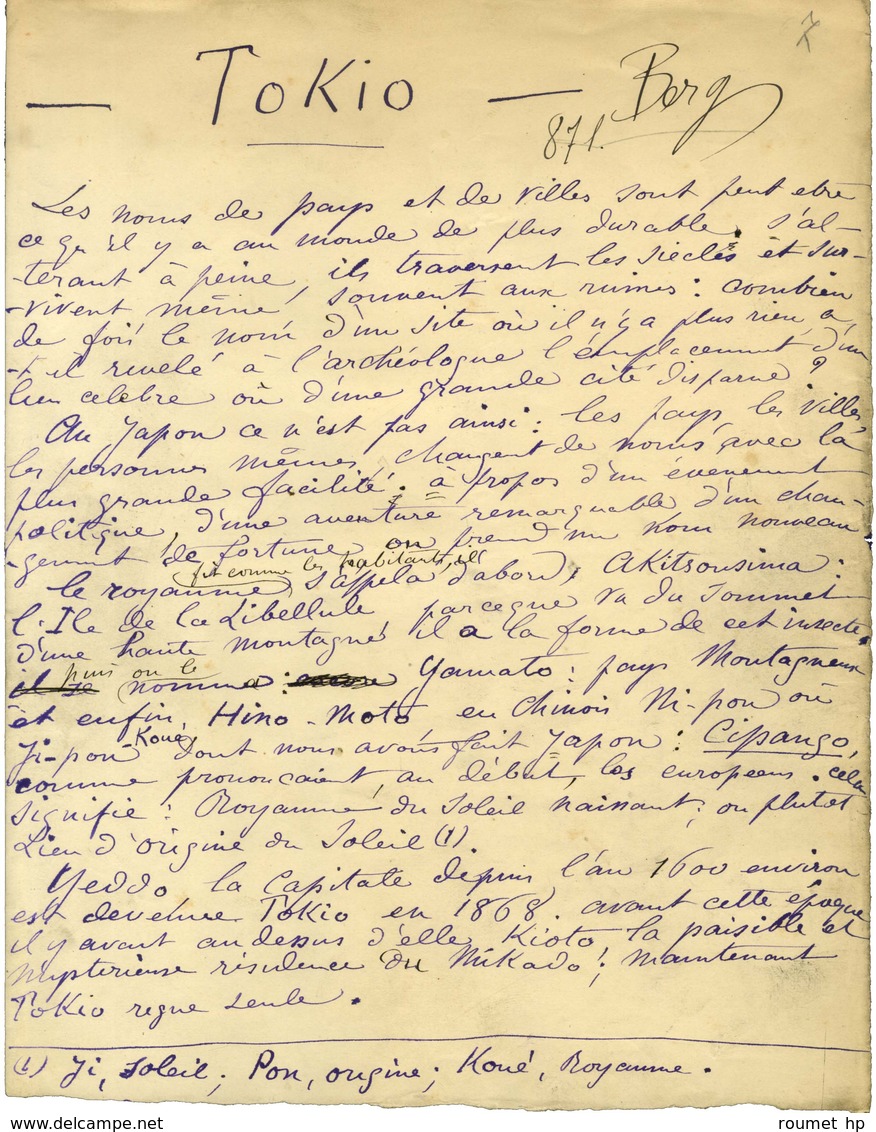 7
— ToKio — Berg
871.
Les noms de pays et de villes sont peut etre
ce qu'il y a au monde de plus durable. s'al-
-terant à peine, ils traversent les siecles et sur-
-vivent même, souvent aux ruines: combien
de fois le nom d'un site où il n'y a plus rien, a
-t-il revelé à l'archéologue l'emplacement d'un
lieu celebre où d'une grande cité disparue?
Au Japon ce n'est pas ainsi: les pays les villes
les personnes mêmes, changent de noms avec la
plus grande facilité. à propos d'un évenement
politique, d'une aventure remarquable d'un chan-
-gement de fortune on prend un nom nouveau
fit comme les habitants, il
le royaume s'appela d'abord, AKitsousima:
l'Ile de la Libellule parceque vu du sommet
d'une haute montagne il a la forme de cet insecte.
puis on le
il se nomma: encore Yamato: pays Montagneux
et enfin, Hino-Moto en Chinois Ni-pon où
Ji-pon-Koué, dont nous avons fait Japon: Cipango,
comme prononçaient, au début, les européens. cela
signifie: Royaume du Soleil naissant; ou plutot
Lieu d'origine du Soleil (1).
Yeddo la capitale depuis l'an 1600 environ
est devenue ToKio en 1868. avant cette époque
il y avait au dessus d'elle Kioto la paisible et
mysterieuse résidence du MiKado; maintenant
ToKio regne seule.
(1) Ji, soleil; Pon, origine; Koué, Royaume.
www.delcampe.net
roumet hp